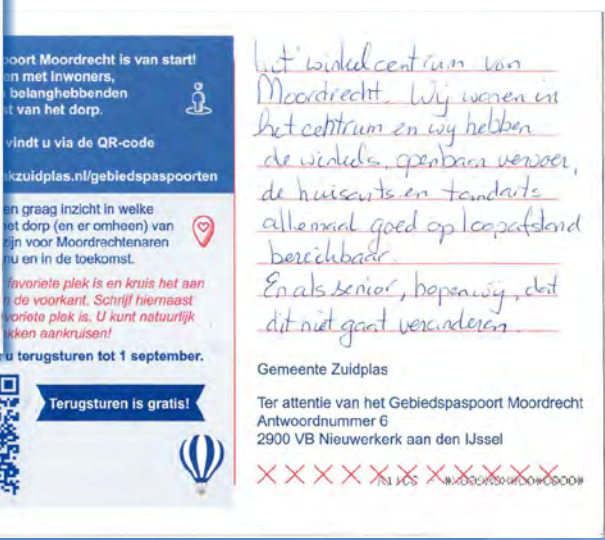 poort Moordrecht is van start!
en met inwoners,
belanghebbenden
st van het dorp.
vindt u via de QR-code
akzuidplas.nl/gebiedspaspoorten
en graag inzicht in welke
het dorp (en er omheen) van
zijn voor Moordrechtenaren
nu en in de toekomst.
favoriete plek is en kruis het aan
n de voorkant. Schrijf hiernaast
voriete plek is. U kunt natuurlijk
kken aankruisen!
u terugsturen tot 1 september.
Terugsturen is gratis!
het winkelcentrum van
Moordrecht. Wij wonen in
het centrum en wij hebben
de winkels, openbaar vervoer,
de huisarts en tandarts
allemaal goed op loopafstand
bereikbaar.
En als senior, hopen wij, dat
dit niet gaat veranderen.
Gemeente Zuidplas
Ter attentie van het Gebiedspaspoort Moordrecht
Antwoordnummer 6
2900 VB Nieuwerkerk aan den IJssel